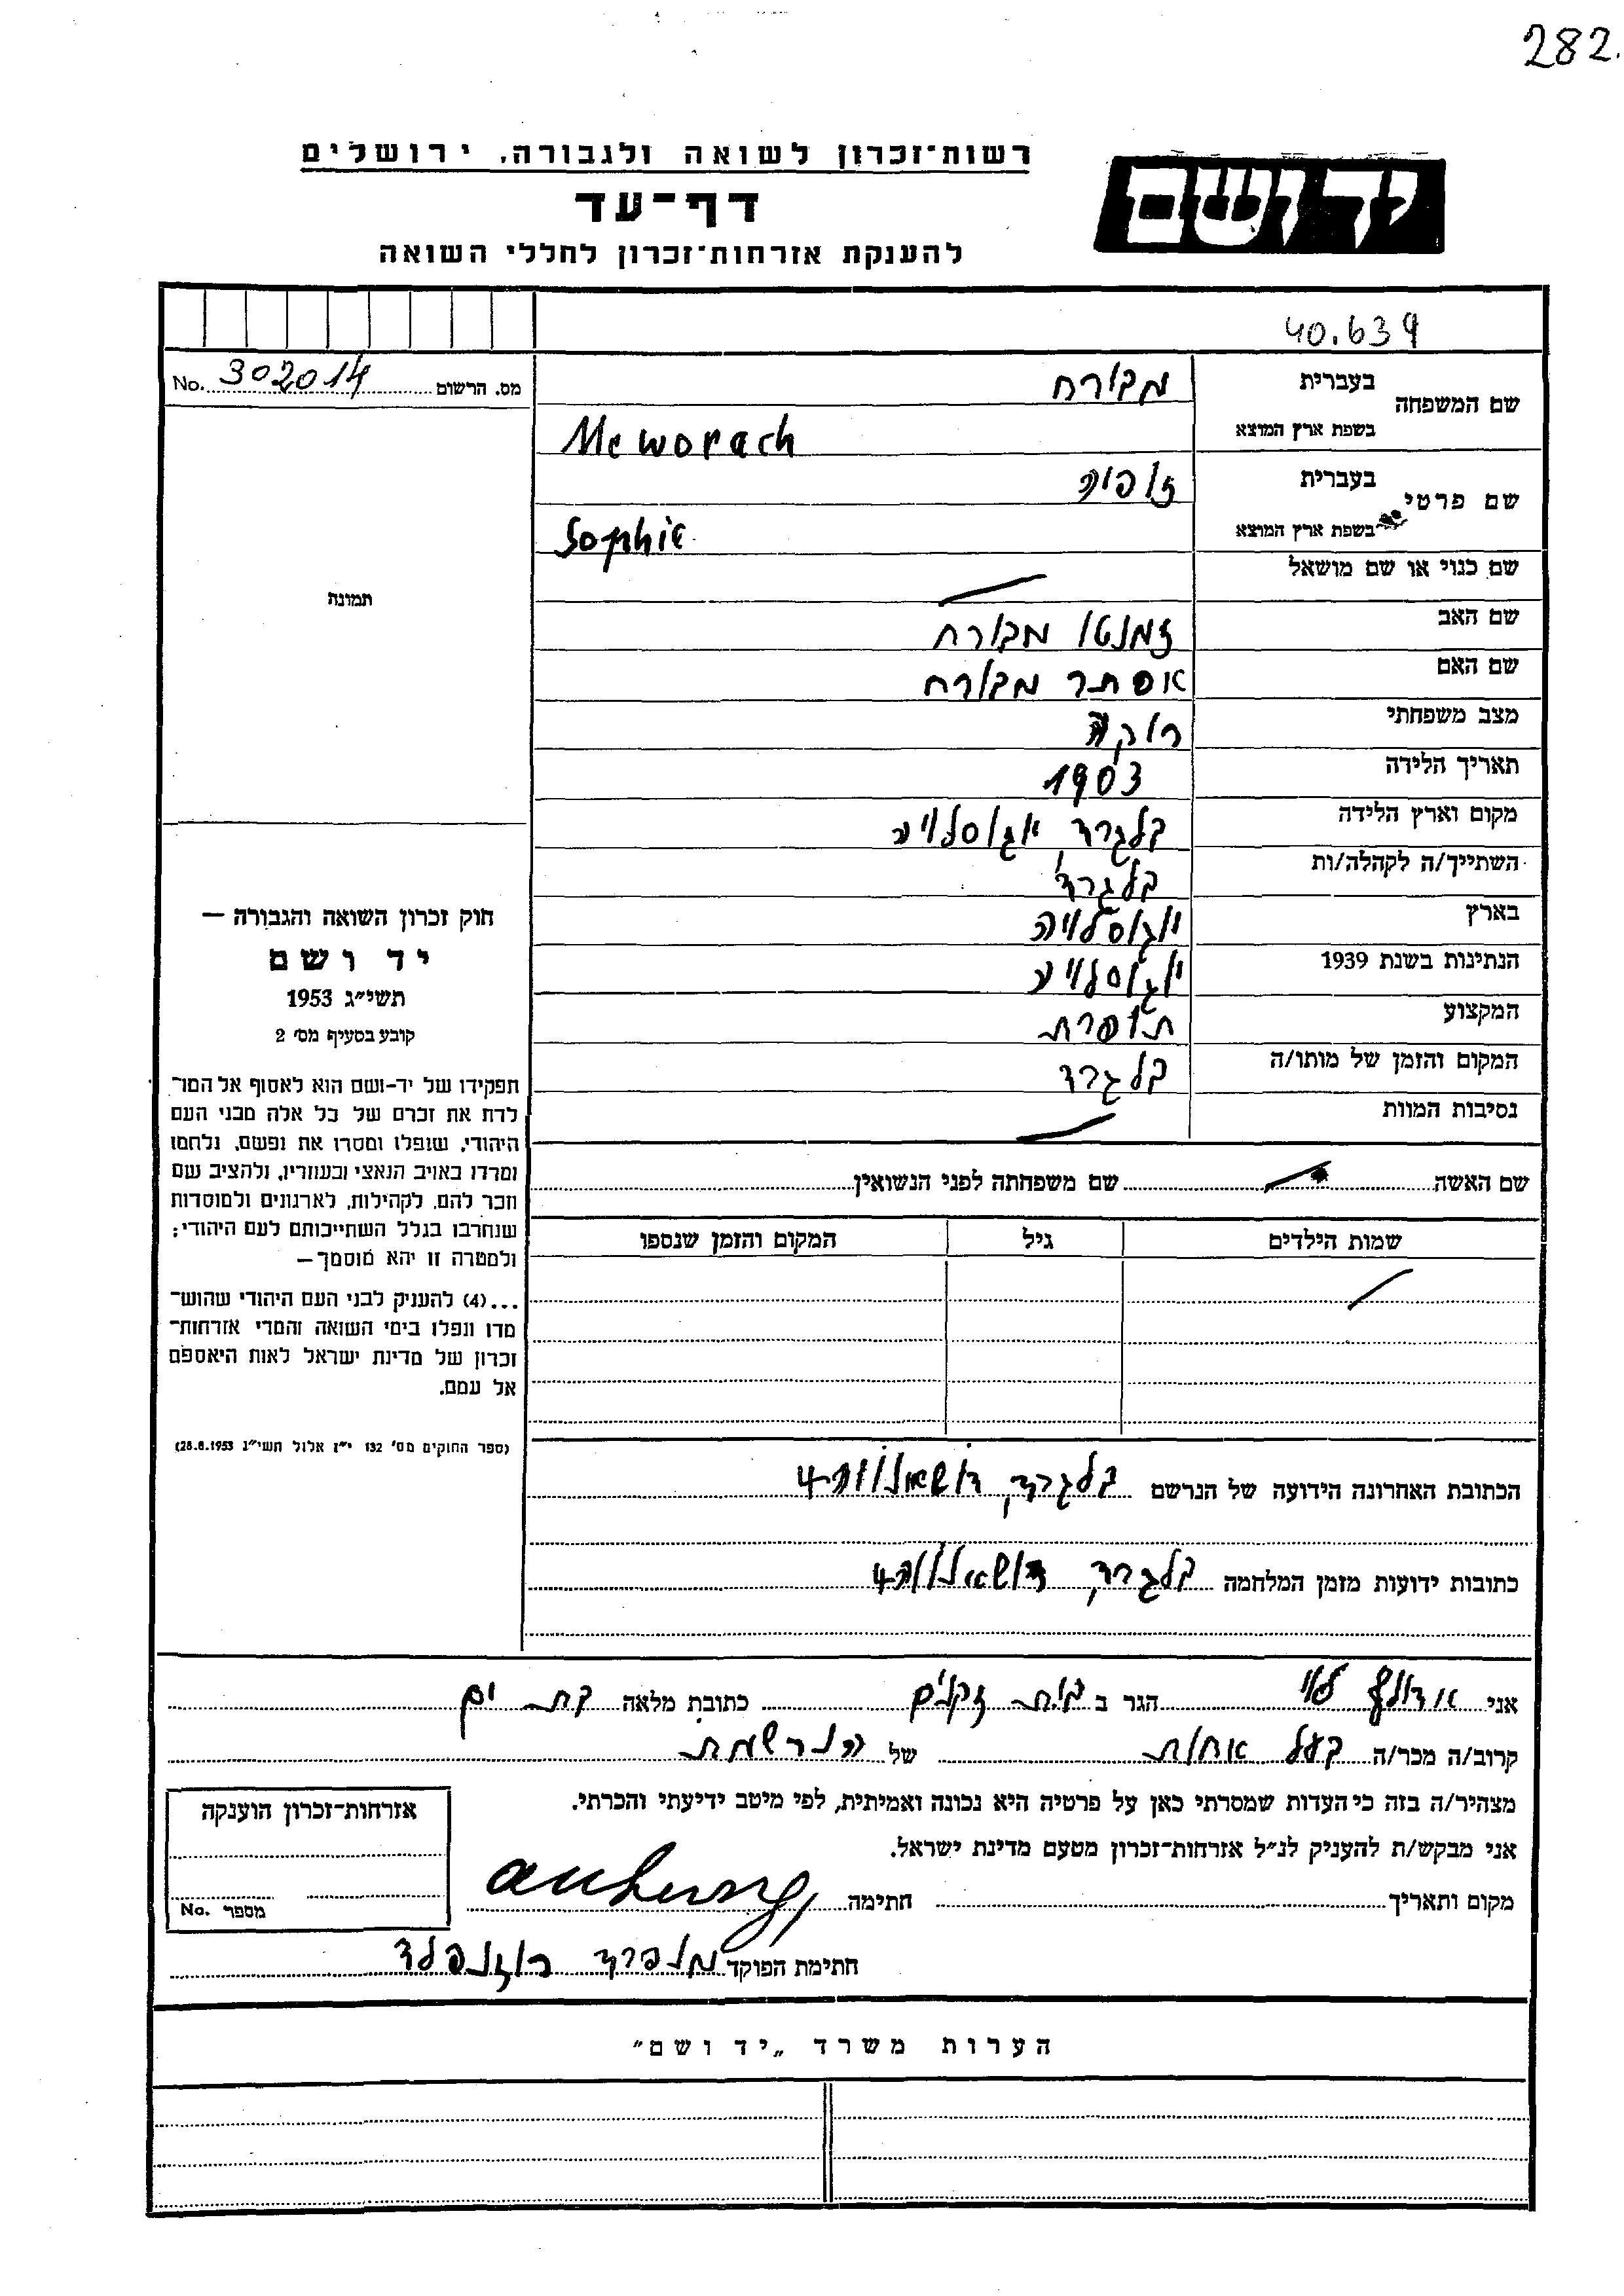 282.
רשות־זכרון לשואה ולגבורה, ירושלים
יד ושם
דף־עד
להענקת אזרחות־זכרון לחללי השואה
40.639
מס. הרשום 302014 No.
שם המשפחה בעברית מבורח
בשפת ארץ המוצא Meworach
שם פרטי בעברית זופיה
בשפת ארץ המוצא Sophie
שם כנוי או שם מושאל —
שם האב זמנטו מבורח
שם האם אסתר מבורח
מצב משפחתי רוקה
תאריך הלידה 1903
מקום וארץ הלידה בלגרד יגוסלויע
השתייך/ה לקהלה/ות בלגרד
בארץ יוגוסלויה
הנתינות בשנת 1939 יוגוסלויע
המקצוע תופרת
המקום והזמן של מותו/ה בלגרד
נסיבות המוות —
שם האשה — שם משפחתה לפני הנשואין
שמות הילדים גיל המקום והזמן שנספו
תמונה
חוק זכרון השואה והגבורה —
יד ושם
תשי״ג 1953
קובע בסעיף מס׳ 2
תפקידו של יד-ושם הוא לאסוף אל המו־
לדת את זכרם של כל אלה מבני העם
היהודי, שנפלו ומסרו את נפשם, נלחמו
ומרדו באויב הנאצי ובעוזריו, ולהציב שם
וזכר להם, לקהילות, לארגונים ולמוסדות
שנחרבו בגלל השתייכותם לעם היהודי;
ולמטרה זו יהא מוסמך—
...(4) להעניק לבני העם היהודי שהוש־
מדו ונפלו בימי השואה והמרי אזרחות־
זכרון של מדינת ישראל לאות היאספם
אל עמם.
(ספר החוקים מס׳ 132 י״ז אלול תשי״ג 28.8.1953)
הכתובת האחרונה הידועה של הנרשם בלגרד
כתובות ידועות מזמן המלחמה בלגרד
אני אדולף לוי הגר ב בית זקנים כתובת מלאה בת ים
קרוב/ה מכר/ה בעל אחות של הנרשמת
מצהיר/ה בזה כי העדות שמסרתי כאן על פרטיה היא נכונה ואמיתית, לפי מיטב ידיעתי והכרתי.
אני מבקש/ת להעניק לנ״ל אזרחות־זכרון מטעם מדינת ישראל.
מקום ותאריך חתימה
אזרחות־זכרון הוענקה
מספר No.
חתימת הפוקד מנפרד רוזנפלד
הערות משרד „יד ושם״